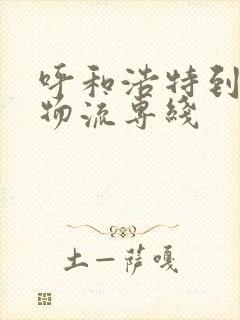 呼和浩特到
物流専綫
土一萨嘎